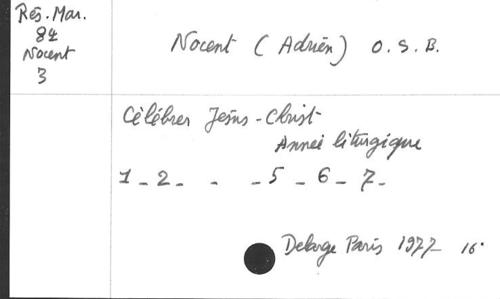 Rés. Mar.
84
Nocent
3
Nocent (Adrien) O.S.B.
Célébrer Jésus-Christ
Année liturgique
1 - 2 - - - 5 - 6 - 7 -
Delarge Paris 1977 16°